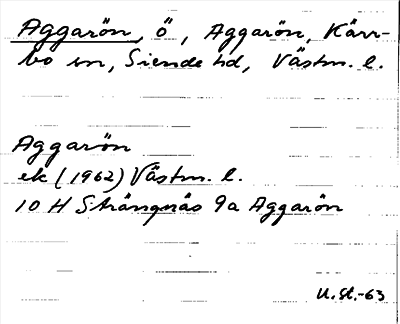 Aggarön, ö, Aggarön, Kärr-
bo sn, Siende hd, Västm. l.
Aggarön
ek (1962) Västm. l.
10 H Strängnäs 9a Aggarön
U.St.-63